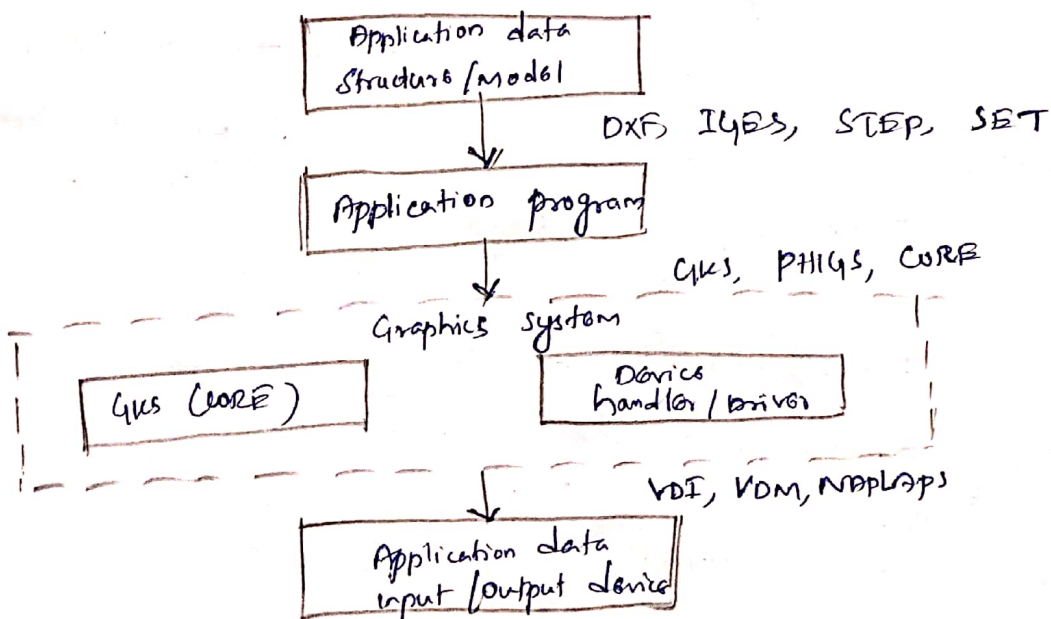 Application data
Structure/model
DXF, IGES, STEP, SET
Application program
GKS, PHIGS, CORE
Graphics system
GKS (CORE)
Device
handler/Driver
VDI, VDM, NAPLAPS
Application data
input/output device